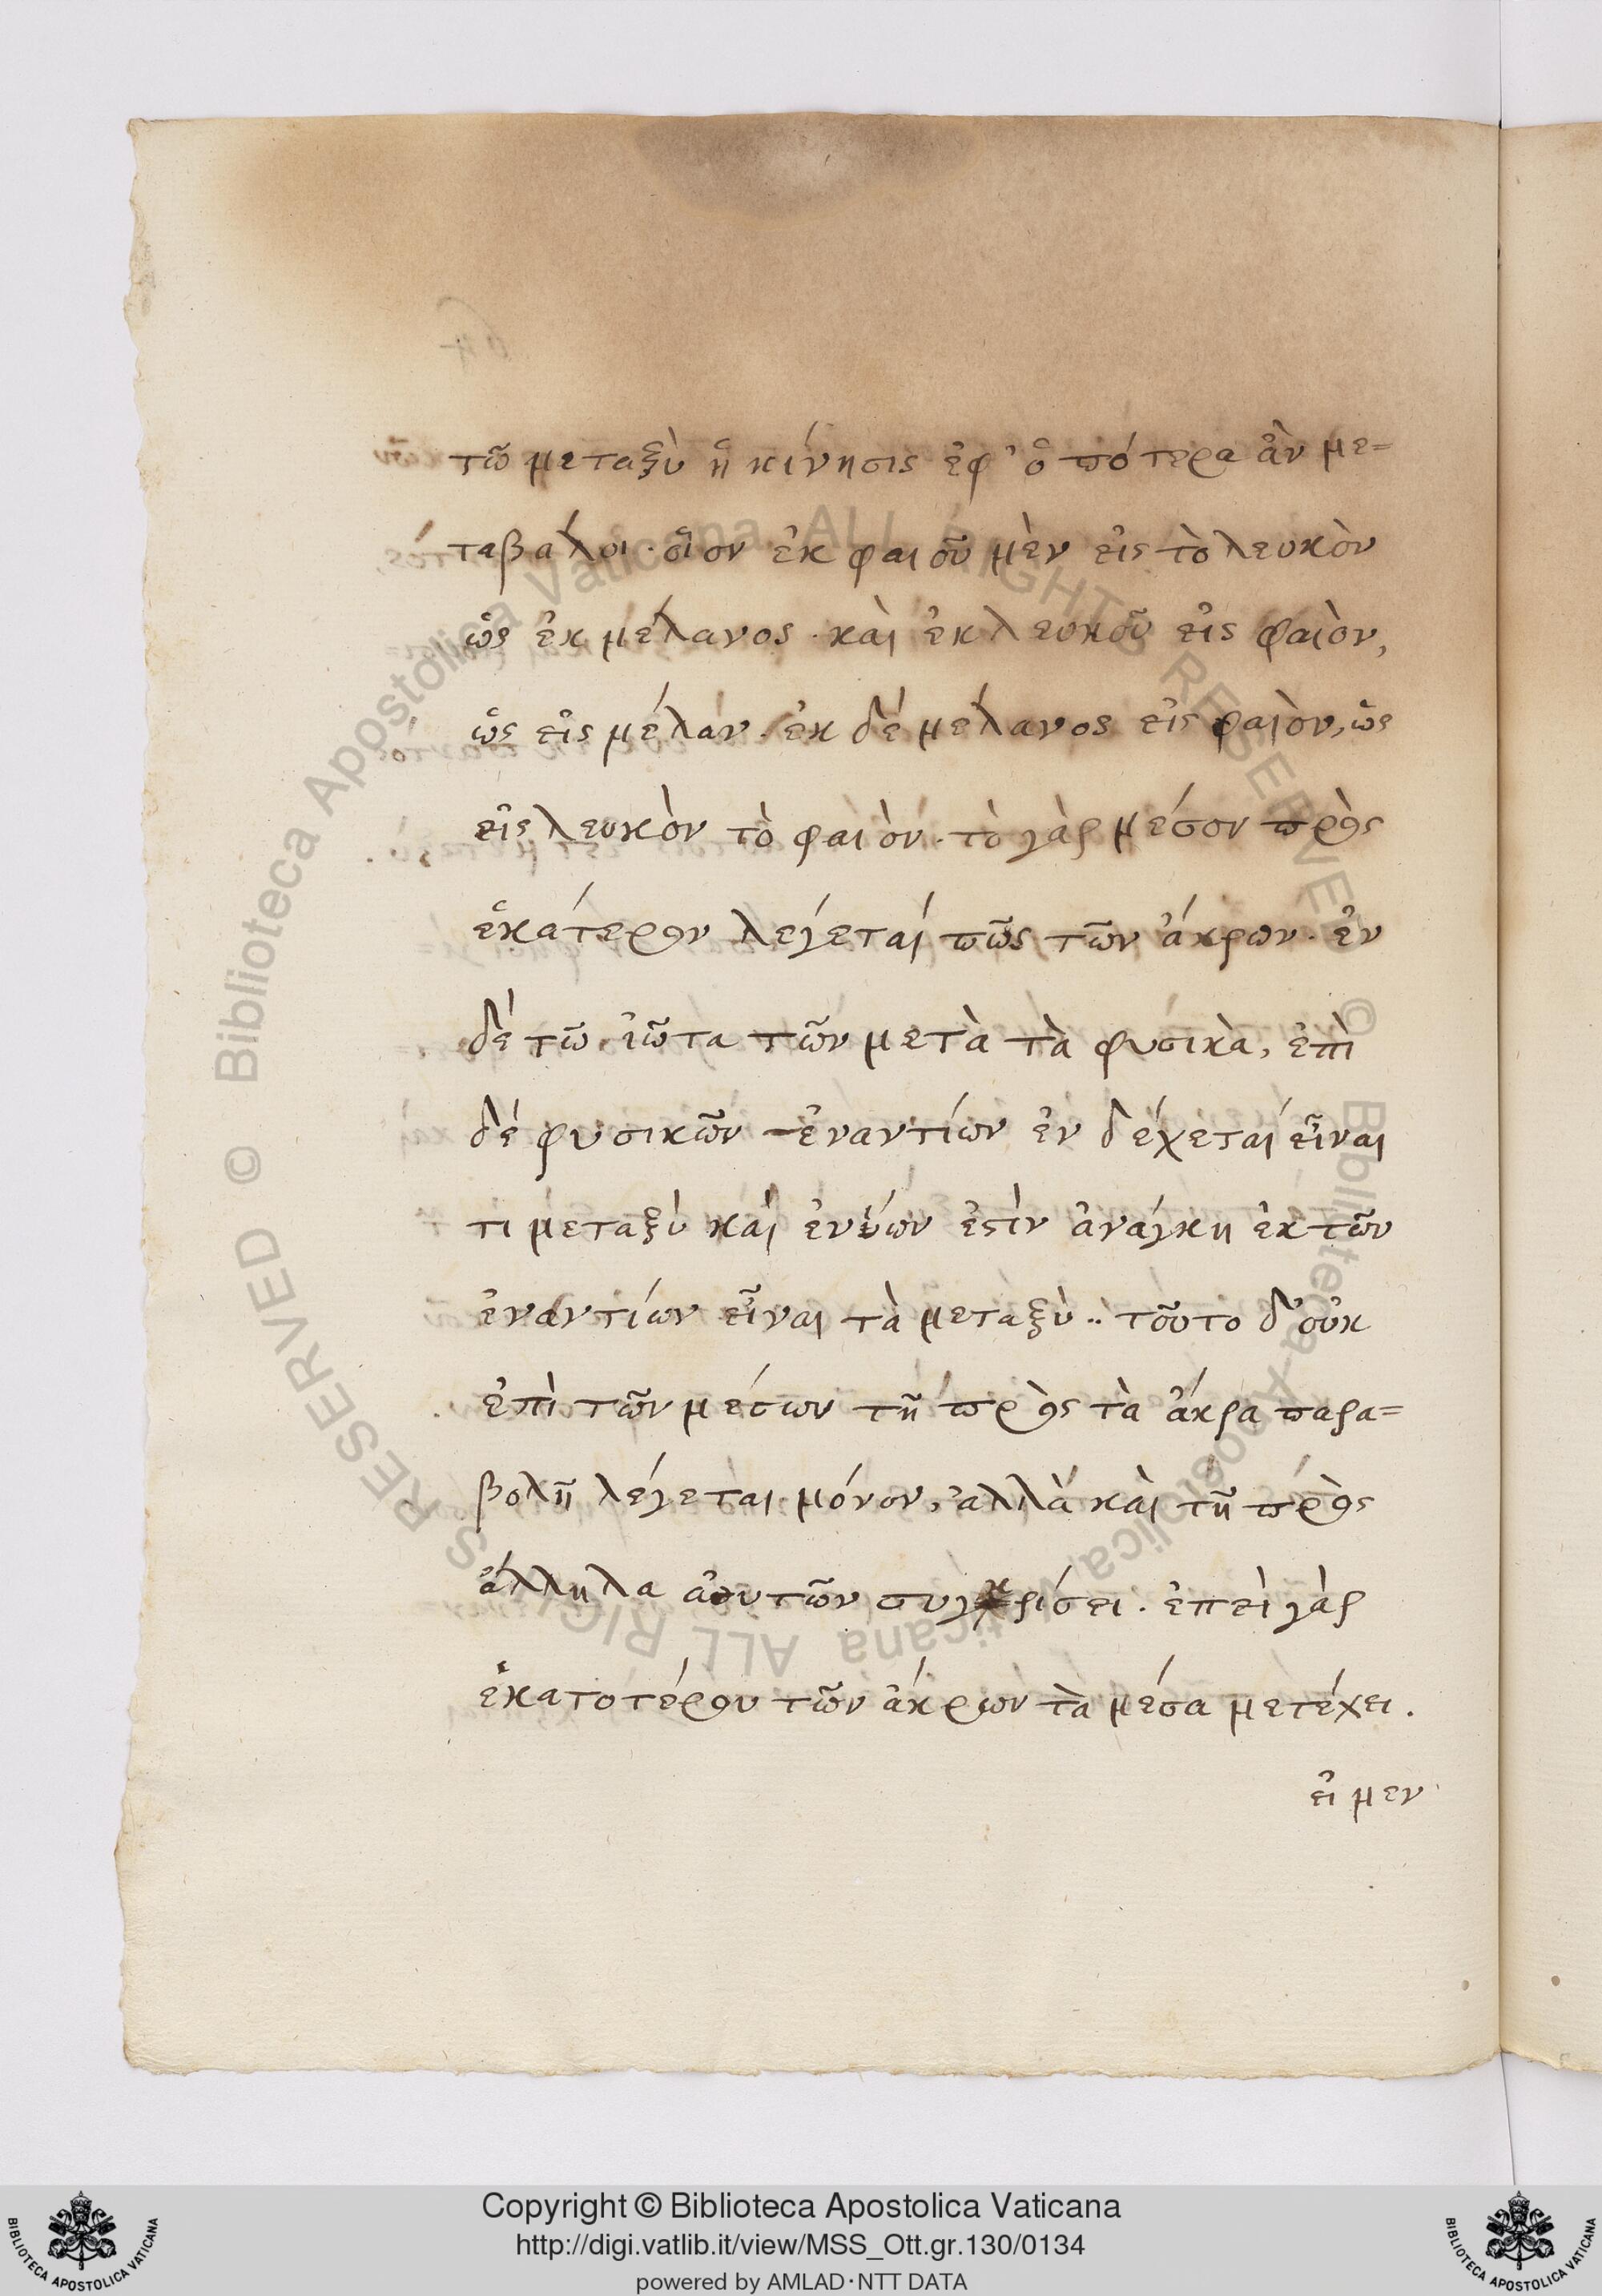 τῶ μεταξὺ ἡ κίνησις ἐφ' ὁπότερα ἂν με=
ταβάλοι· οἷον ἐκ φαιοῦ μὲν εἰς τὸ λευκὸν
ὡς ἐκ μέλανος· καὶ ἐκ λευκοῦ εἰς φαιὸν,
ὡς εἰς μέλαν· ἐκ δὲ μέλανος εἰς φαιὸν, ὡς
εἰς λευκὸν τὸ φαιόν· τὸ γὰρ μέσον πρὸς
ἑκάτερον λέγεταί πῶς τῶν ἄκρων· ἐν
δὲ τῶ ἰῶτα τῶν μετὰ τὰ φυσικὰ, ἐπὶ
δὲ φυσικῶν ἐναντίων ἐν δέχεταί εἶναι
τι μεταξὺ καὶ ἐνίων ἐστὶν ἀνάγκη ἐκ τῶν
ἐναντίων εἶναι τὰ μεταξὺ·· τοῦτο δ' οὐκ
ἐπὶ τῶν μέσων τῆ πρὸς τὰ ἄκρα παρα=
βολῆ λέγεται μόνον, ἀλλὰ καὶ τῆ πρὸς
ἄλληλα αὐτῶν συγκρίσει· ἐπεὶ γὰρ
ἑκατοτέρου τῶν ἄκρων τὰ μέσα μετέχει.
εἰ μεν
Copyright © Biblioteca Apostolica Vaticana
http://digi.vatlib.it/view/MSS_Ott.gr.130/0134
powered by AMLAD·NTT DATA
© Biblioteca Apostolica Vaticana ALL RIGHTS RESERVED
© Biblioteca Apostolica Vaticana ALL RIGHTS RESERVED
BIBLIOTECA APOSTOLICA VATICANA
BIBLIOTECA APOSTOLICA VATICANA